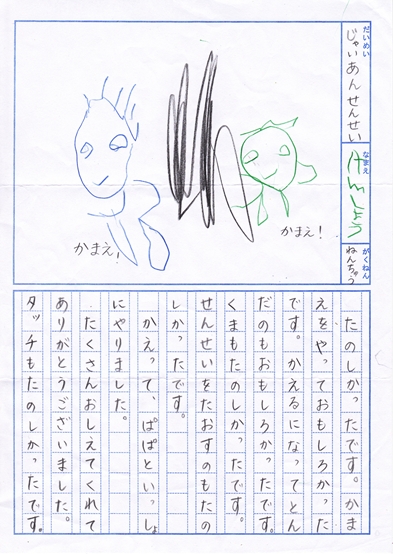 だいめい
じゃいあんせんせい
なまえ
けんしょう
がくねん
ねんちゅう
かまえ!
かまえ!
たのしかったです。かま
えをやっておもしろかった
です。かえるになってとん
だのもおもしろかったです。
くまもたのしかったです。
せんせいをたおすのもたの
しかったです。
かえって、ぱぱといっしょ
にやりました。
たくさんおしえてくれて
ありがとうございました。
タッチもたのしかったです。